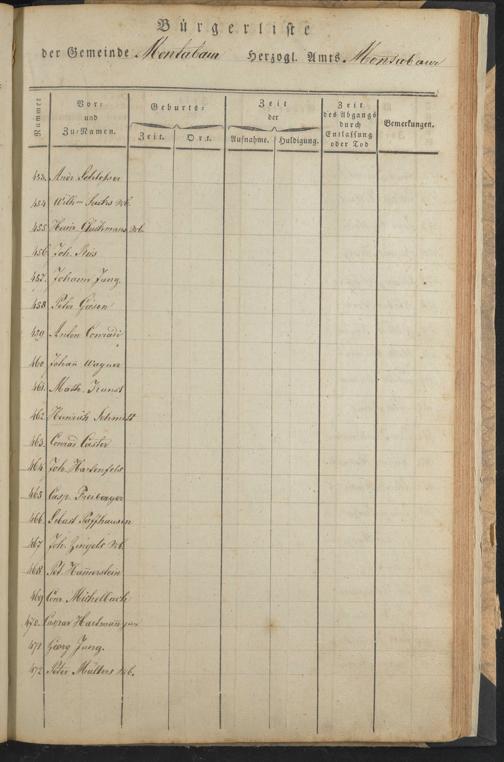 Bürgerliste
der Gemeinde Montabaur Herzogl. Amts Montabaur
Nummer
Vor- und Zu-Namen.
Geburts-
Zeit. Ort.
Zeit der
Aufnahme. Huldigung.
Zeit des Abgangs durch Entlassung oder Tod
Bemerkungen.
453. Andr. Schlosser
454 Wilhm Sachs Wb.
455 Heinr. Wb.
456 Joh.
457. Johann Jung.
458 Peter Giesen
459 Anton Conradi
460 Johann Wagner
461. Math. Kunst
462 Heinrich Schmidt
463. Conrad Caster
464 Joh. Hartenfels
465 Casp. Freiberger
466. Sebast Paffhausen
467 Joh. Zingels Wb.
468 Pet. Hamerstein
469 Conr. Michelbach
470. Caspar Hartmann jun
471 Georg Jung.
472 Peter Müllers Wb.